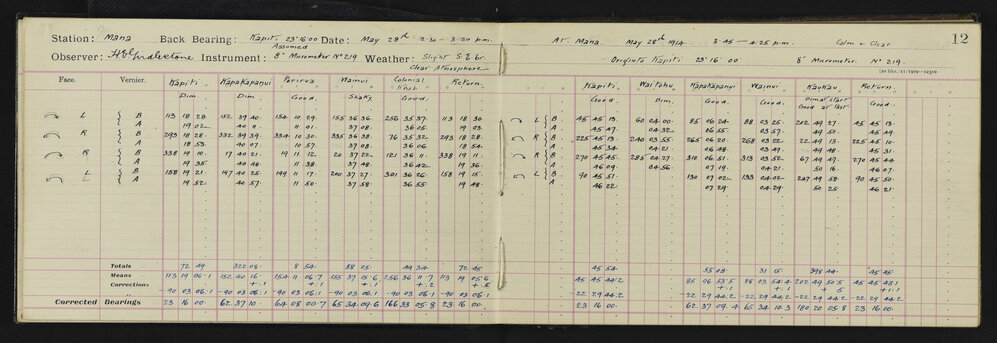 Station: Mana Back Bearing: Kapiti 23° 16 00 Date: May 28th 2·30 – 3·20 p.m. At Mana. May 28th 1914 3·45 – 4·25 p.m. Calm & Clear 12
Assumed
Observer: Instrument: 8" Micrometer No 219 Weather: Slight S E br. Origin to Kapiti 23° 16' 00 8" Micrometer No 219.
Clear Atmosphere
Face. Vernier. Kapiti Kapakapanui Porirua Wainui Colonial Knob Return. Kapiti Waitohu Kapakapanui Wainui Kaukau Return.
Dim. Dim. Good. Shaky Good. Good. Dim. Good. Good. Dim at start Good at last Good.
L B 113 18 28 152 39 40 154 10 29 155 36 36 256 35 37 113 18 30 L B 45 45 13 60 04 00 85 06 24 88 03 25 202 49 27 45 45 13
A 19 02 40 11 11 01 37 08 36 05 19 03 A 45 47 04 32 06 55 03 57 49 50 45 49
R B 293 18 28 332 39 39 334 10 30 335 36 38 76 35 32 293 18 28 R B 225 45 13 240 03 55 265 06 20 268 03 22 22 49 13 225 45 10
A 18 53 40 07 10 57 37 08 36 06 18 54 A 45 34 04 21 06 48 03 49 49 48 45 31
R B 338 19 10 17 40 21 19 11 12 20 37 22 121 36 11 338 19 11 R B 270 45 45 285 04 27 310 06 51 313 03 52 67 49 49 270 45 44
A 19 35 40 48 11 38 37 48 36 42 19 36 A 46 09 04 56 07 19 04 21 50 16 46 07
L B 158 19 21 197 40 25 199 11 17 200 37 27 301 36 26 158 19 15 L B 90 45 51 130 07 02 133 04 02 247 49 58 90 45 50
A 19 52 40 57 11 50 37 58 36 55 19 48 A 46 22 07 29 04 29 50 25 46 21
Totals 72 49 322 08 8 54 58 05 49 34 72 45 45 54 55 08 31 15 398 44 45 45
Means 113 19 06·1 152 40 16· 154 11 06·7 155 37 15·6 256 36 11·7 113 19 05·6 45 45 44·2 85 06 53·5 88 03 54·4 202 49 50·5 45 45 43·1
Corrections +·1 +·1 +·2 +·5 +·1 +·1 +·5 +1·1
–90 03 06·1 –90 03 06·1 –90 03 06·1 –90 03 06·1 –90 03 06·1 –90 03 06·1 –22 29 44·2 –22 29 44·2 –22 29 44·2 –22 29 44·2 –22 29 44·2
Corrected Bearings 23 16 00· 62 37 10· 64 08 00·7 65 34 09·6 166 33 05·8 23 16 00· 23 16 00· 62 37 09·4 65 34 10·3 180 20 05·8 23 16 00·